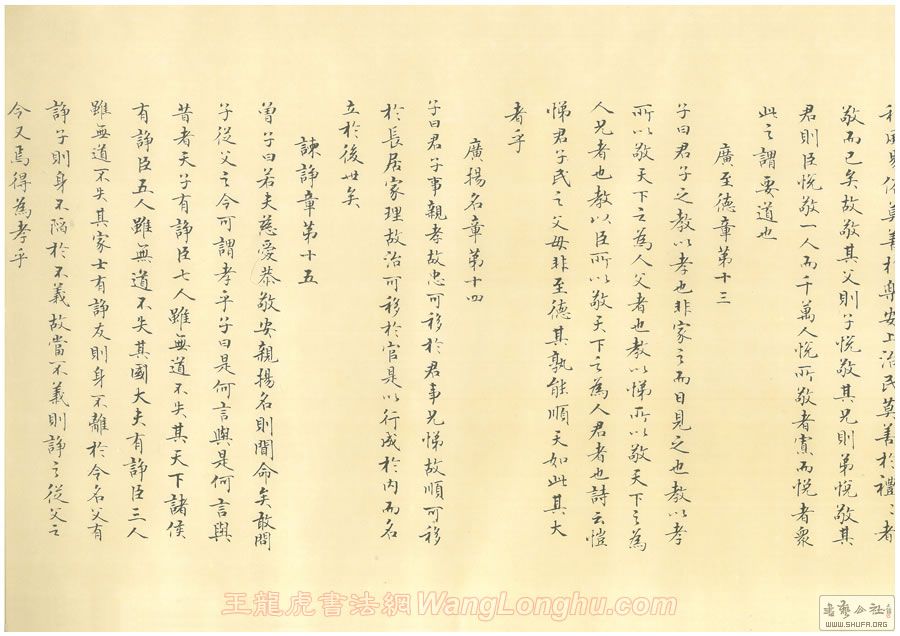 莫善於樂安上治民莫善於禮禮者
敬而已矣故敬其父則子悅敬其兄則弟悅敬其
君則臣悅敬一人而千萬人悅所敬者寡而悅者衆
此之謂要道也
廣至德章第十三
子曰君子之教以孝也非家之而日見之也教以孝
所以敬天下之為人父者也教以悌所以敬天下之為
人兄者也教以臣所以敬天下之為人君者也詩云愷
悌君子民之父母非至德其孰能順天如此其大
者乎
廣揚名章第十四
子曰君子事親孝故忠可移於君事兄悌故順可移
於長居家理故治可移於官是以行成於內而名
立於後世矣
諫諍章第十五
曾子曰若夫慈愛恭敬安親揚名則聞命矣敢問
子從父之令可謂孝乎子曰是何言與是何言與
昔者天子有諍臣七人雖無道不失其天下諸侯
有諍臣五人雖無道不失其國大夫有諍臣三人
雖無道不失其家士有諍友則身不離於令名父有
諍子則身不陷於不義故當不義則諍之從父之
令又焉得為孝乎
王龍虎書法網WangLonghu.com
書藝公社
WWW.SHUFA.ORG